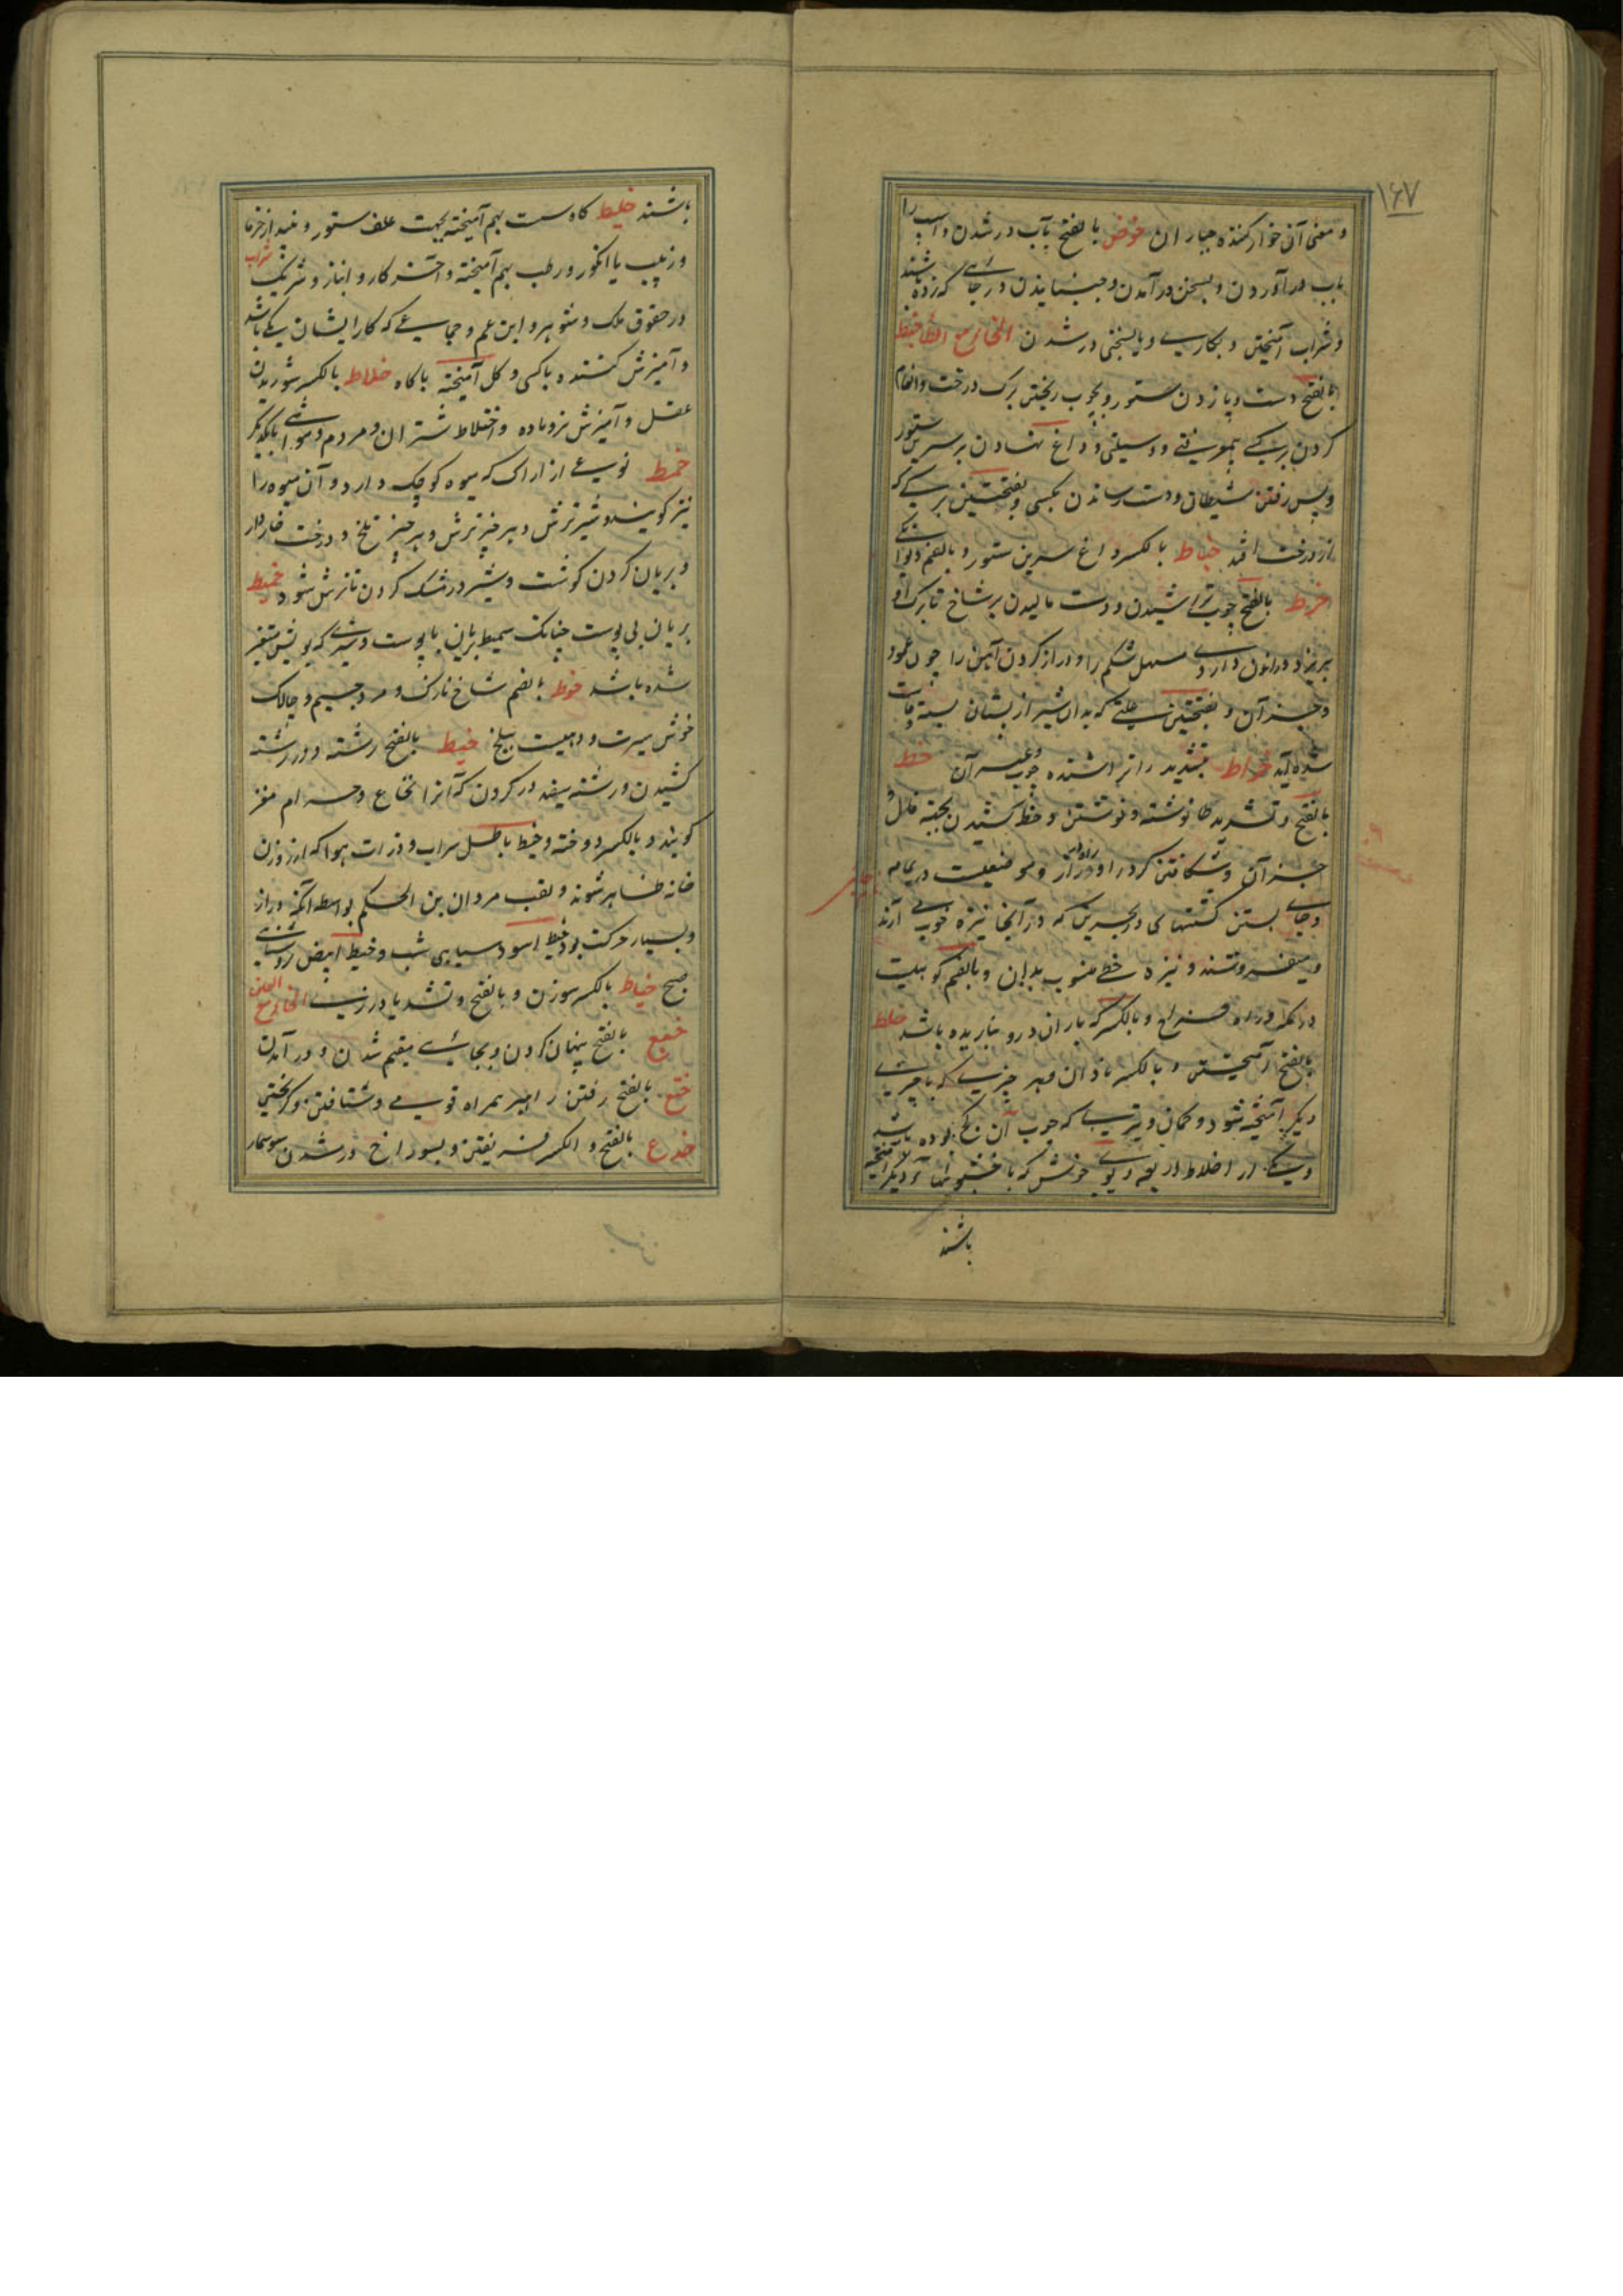 ۱۶۷
و معنی آن خوار کننده جباران خوض بالفتح بآب در شدن و اسپ را
بآب در آوردن و بسخن در آمدن و جنبانیدن در جائے که زده باشند
و شراب آمیختن و بکاریے و یا بسخنی در شدن الخا مع الطا خبط
بالفتح دست و پا زدن ستور و بچوب ریختن برک درخت و انعام
کردن بر کسے بے معرفتے و وسیلتی و داغ نهادن بر سرین ستور
و پس رفتن شیطان و دست رساندن بکسی و بفتحتین برکے که
از درخت افتد خباط بالکسر داغ سرین ستور و بالضم دیوانکے
خرط بالفتح چوب تراشیدن و دست مالیدن بر شاخ تا برک او
بریزد و در انون داروے مسهل شکم را و دراز کردن آهن را چون عمود
و جز آن و بفتحتین علتے که بدان شیر از پستان بسته
شده آید خراط بتشدید را تراشنده چوب و غیر آن خط
بالفتح و تشدید طا نوشته و نوشتن و خط کشیدن بجهة فال و
جز آن و شکافتن کرد را و راه دراز و موضعیت در یمامه
و جاے بستن کشتیهای در بحرین که در آنجا نیزه خوب مے آرند
و میفروشند و نیزه خطے منسوب بدان و بالضم کوهیست
در مکه و راه فراخ و بالکسر که باران درو نباریده باشد خلط
بالفتح آمیختن و بالکسر نادان و هر چیزے که با چیزے
دیکر آمیخته شود و کمان و تیریے که چوب آن کج بوده باشد
و یکے از اخلاط اربعه و بوے خوش که با خوشبوئیهاے دیکر آمیخته
باشند
باشند خلیط کاه ست بهم آمیخته بجهت علف ستور و نبیذ از خرما
و زبیب یا انکور و رطب بهم آمیخته و آخر کار و انباز و شریک شراب
در حقوق ملک و شوهر و ابن عم و جماعے که کار ایشان یکے باشد
و آمیزش کننده با کسی و کل آمیخته با کاه خلاط بالکسر شوریدن
عقل و آمیزش نر و ماده و اختلاط شتران و مردم و مواشے با یکدیکر
خمط نوعے از اراک که میوه کوچک دارد و آن میوه را
نیز کویند و شیر ترش و هر چیز ترش و هر چیز تلخ و درخت خاردار
و بریان کردن کوشت و شیر در مشک کردن تا ترش شود خمیط
بریان بی پوست چنانکه سمیط بریان با پوست و شیرے که بویش متغیر
شده باشد خوط بالضم شاخ نازک و مرد جسیم و چالاک
خوش سیرت و دهیست ببلخ خیط بالفتح رشته و در رشته
کشیدن و رشته سفید در کردن که آنرا نخاع و حرام مغز
کویند و بالکسر دوخته و خیط باطل سراب و ذرات هوا که از روزن
خانه ظاهر شوند و لقب مروان بن الحکم بواسطه آنکه دراز
و بسیار حرکت بود خیط اسود سیاهی شب و خیط ابیض روشنائے
صبح خیاط بالکسر سوزن و بالفتح و تشدید یا درزی الخا مع العین
خبع بالفتح پنهان کردن و بجائے مقیم شدن و در آمدن
ختع بالفتح رفتن راهبر بهمراه قومے و شتافتن و کریختن
خدع بالفتح و الکسر فریفتن و بسوراخ در شدن سوسمار